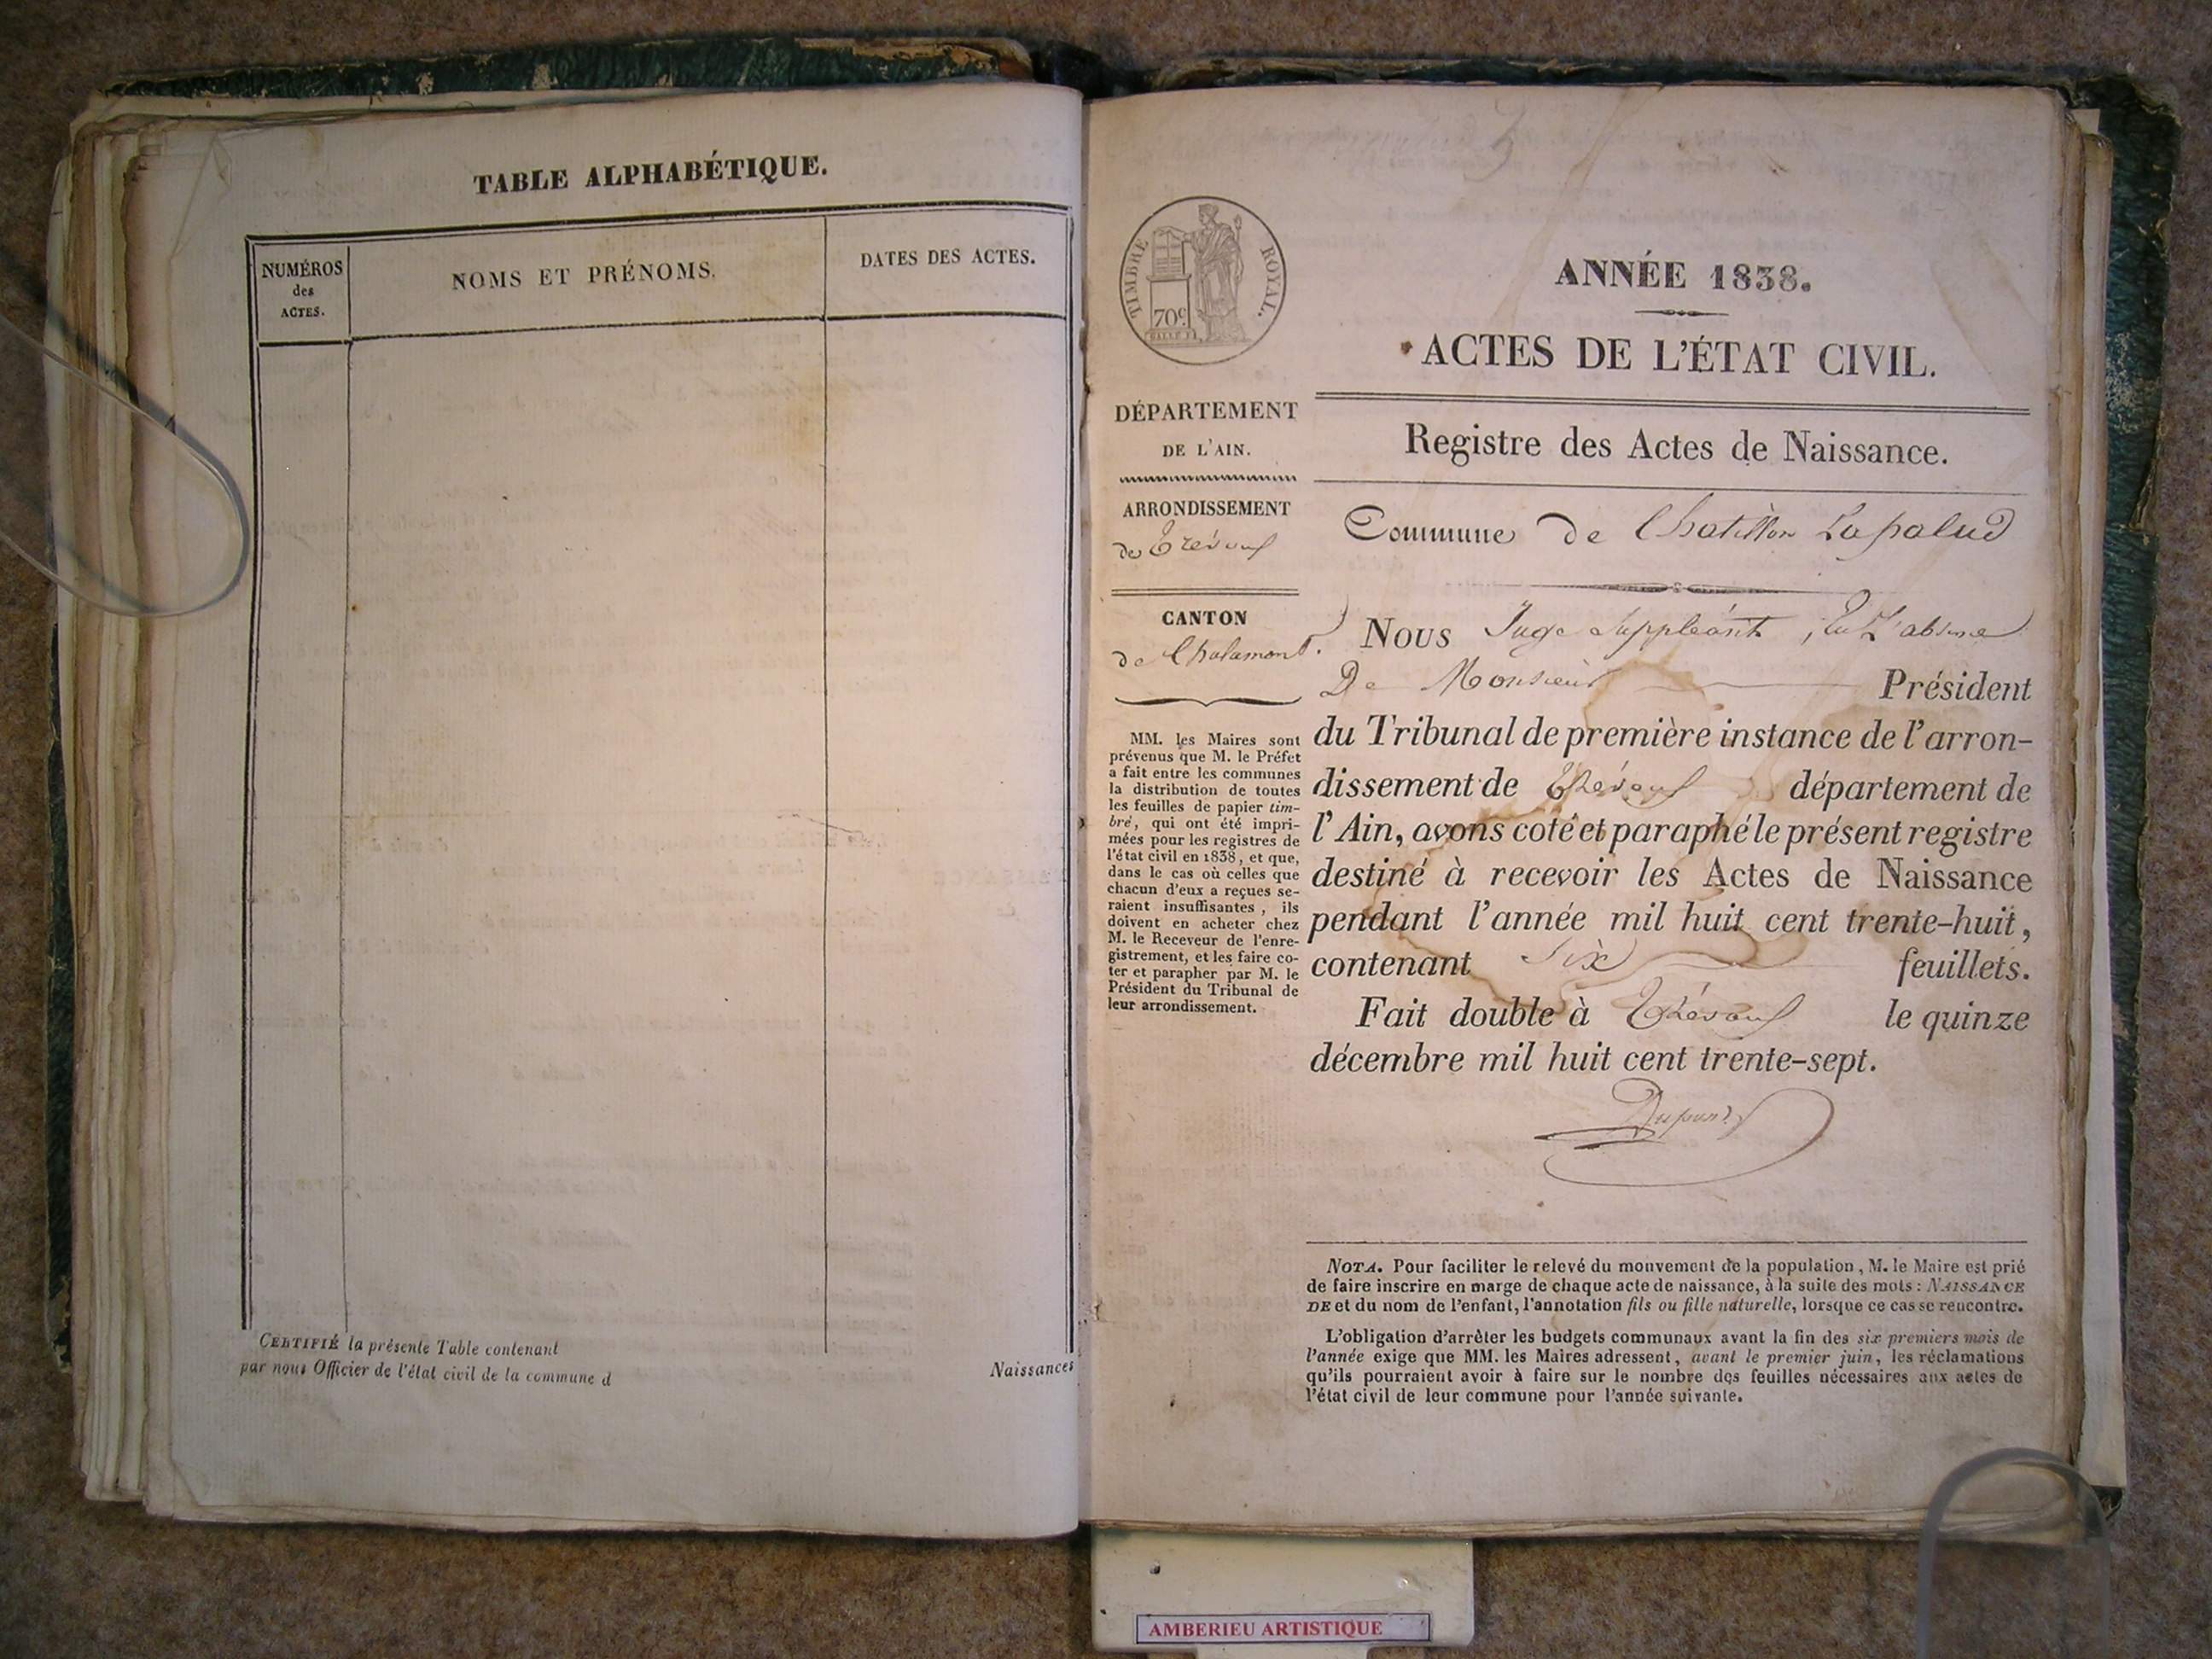 TABLE ALPHABÉTIQUE.
NUMÉROS
des
ACTES.
NOMS ET PRÉNOMS.
DATES DES ACTES.
CERTIFIÉ la présente Table contenant
Naissances
par nous Officier de l'état civil de la commune d
TIMBRE ROYAL.
70c
ANNÉE 1838.
ACTES DE L'ÉTAT CIVIL.
DÉPARTEMENT
DE L'AIN.
ARRONDISSEMENT
de Trévoux
CANTON
de Chalamont.
MM. les Maires sont
prévenus que M. le Préfet
a fait entre les communes
la distribution de toutes
les feuilles de papier tim-
bré, qui ont été impri-
mées pour les registres de
l'état civil en 1838, et que,
dans le cas où celles que
chacun d'eux a reçues se-
raient insuffisantes, ils
doivent en acheter chez
M. le Receveur de l'enre-
gistrement, et les faire co-
ter et parapher par M. le
Président du Tribunal de
leur arrondissement.
Registre des Actes de Naissance.
Commune de Chatillon Lapalud
Nous Juge Suppléant, En L'absence
De Monsieur Président
du Tribunal de première instance de l'arron-
dissement de Trévoux département de
l'Ain, avons coté et paraphé le présent registre
destiné à recevoir les Actes de Naissance
pendant l'année mil huit cent trente-huit,
contenant Six feuillets.
Fait double à Trévoux le quinze
décembre mil huit cent trente-sept.
NOTA. Pour faciliter le relevé du mouvement de la population, M. le Maire est prié
de faire inscrire en marge de chaque acte de naissance, à la suite des mots : NAISSANCE
DE et du nom de l'enfant, l'annotation fils ou fille naturelle, lorsque ce cas se rencontre.
L'obligation d'arrêter les budgets communaux avant la fin des six premiers mois de
l'année exige que MM. les Maires adressent, avant le premier juin, les réclamations
qu'ils pourraient avoir à faire sur le nombre des feuilles nécessaires aux actes de
l'état civil de leur commune pour l'année suivante.
AMBERIEU ARTISTIQUE